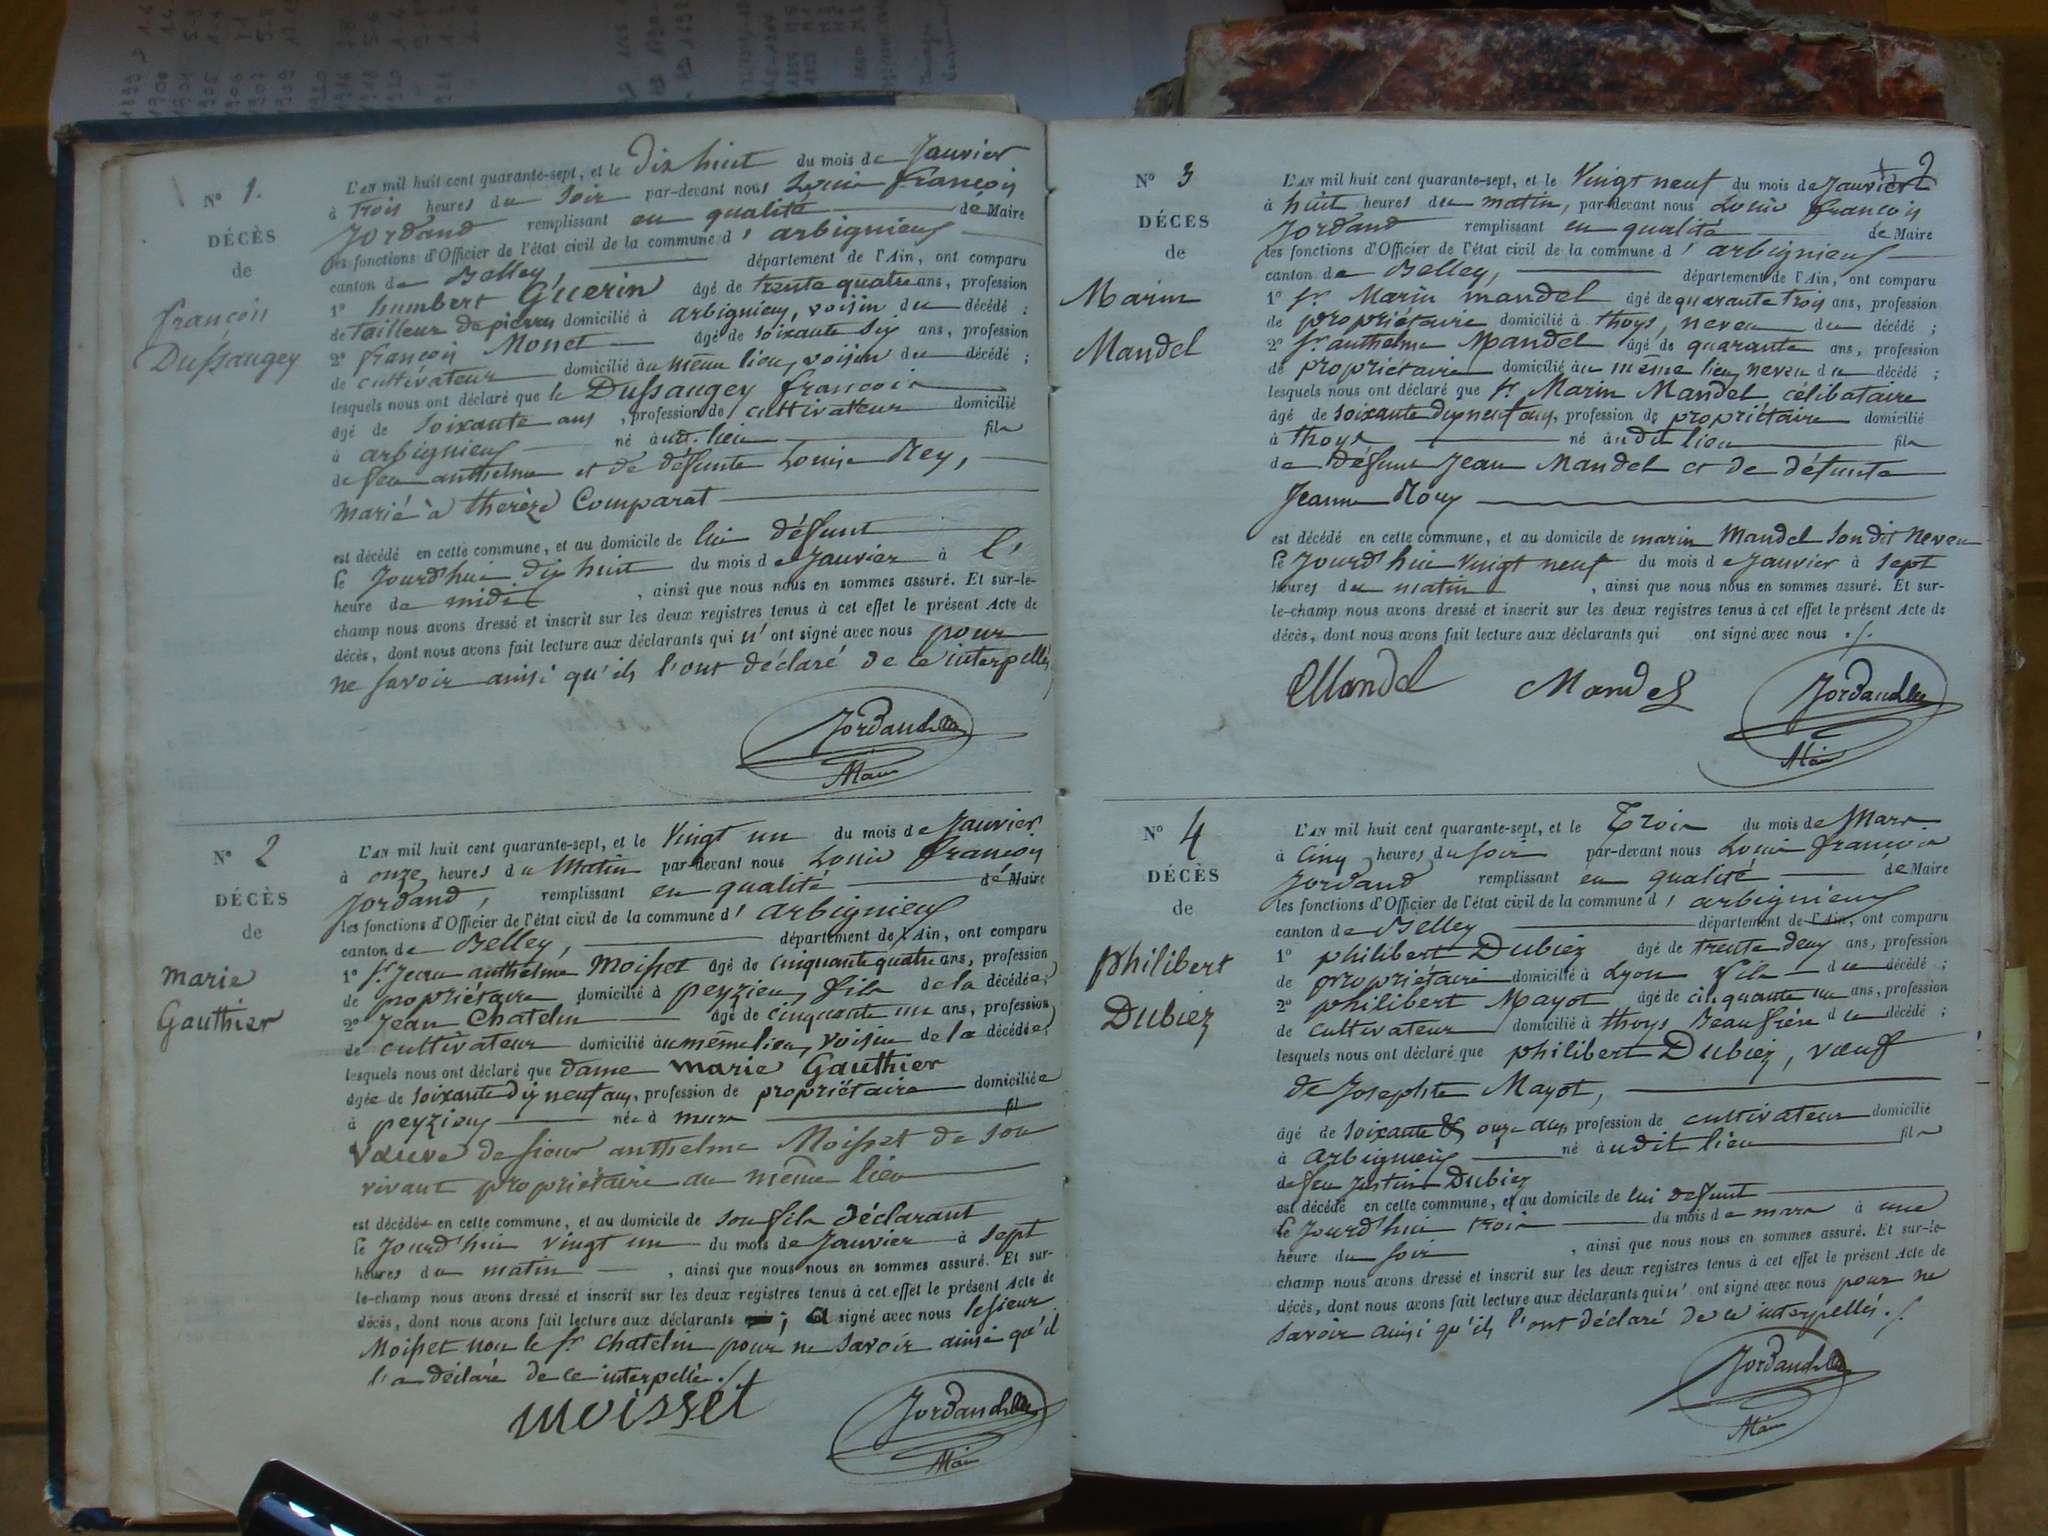 Nº 1.
DÉCÈS
de
françois
Dussaugey
L'AN mil huit cent quarante-sept, et le Dix huit du mois de Janvier
à trois heures du soir par-devant nous Louis françois
Jordand remplissant en qualité de Maire
les fonctions d'Officier de l'état civil de la commune d'arbignieux
canton de Belley, département de l'Ain, ont comparu
1º humbert Guerin âgé de trente quatre ans, profession
de tailleur de pierres domicilié à arbignieux, voisin du décédé ;
2º françois Monet âgé de soixante six ans, profession
de cultivateur domicilié au même lieu, voisin du décédé ;
lesquels nous ont déclaré que le Dussaugey françois
âgé de soixante ans, profession de cultivateur domicilié
à arbignieux né aud. lieu fils
de feu anthelme et de défunte Louise Rey,
marié à thérèze Comparat
est décédé en cette commune, et au domicile de lui défunt
le Jourd'hui dix huit du mois de Janvier à l'
heure de midi, ainsi que nous nous en sommes assuré. Et sur-le-
champ nous avons dressé et inscrit sur les deux registres tenus à cet effet le présent Acte de
décès, dont nous avons fait lecture aux déclarants qui n'ont signé avec nous pour
ne savoir ainsi qu'ils l'ont déclaré de ce interpellés
Jordand
Maire
Nº 2
DÉCÈS
de
Marie
Gauthier
L'AN mil huit cent quarante-sept, et le Vingt un du mois de Janvier
à onze heures du Matin par-devant nous Louis françois
Jordand, remplissant en qualité de Maire
les fonctions d'Officier de l'état civil de la commune d'arbignieux
canton de Belley, département de l'Ain, ont comparu
1º Sr. Jean anthelme Moisset âgé de cinquante quatre ans, profession
de propriétaire domicilié à peyzieu, fils de la décédée ;
2º Jean Chatelin âgé de cinquante un ans, profession
de cultivateur domicilié au même lieu, voisin de la décédée ;
lesquels nous ont déclaré que dame Marie Gauthier
âgée de soixante dix neuf ans, profession de propriétaire domiciliée
à peyzieu née à murs fil
vœuve de sieur anthelme Moisset de son
vivant propriétaire au même lieu
est décédée en cette commune, et au domicile de son fils déclarant
le Jourd'hui vingt un du mois de Janvier à sept
heures du matin, ainsi que nous nous en sommes assuré. Et sur-
le-champ nous avons dressé et inscrit sur les deux registres tenus à cet effet le présent Acte de
décès, dont nous avons fait lecture aux déclarants ; a signé avec nous le sieur
Moisset non le Sr. Chatelin pour ne savoir ainsi qu'il
l'a déclaré de ce interpellé ./.
moisset
Jordand
Maire
2
Nº 3
DÉCÈS
de
Marin
Mandel
L'AN mil huit cent quarante-sept, et le Vingt neuf du mois de Janvier
à huit heures du matin, par-devant nous Louis françois
Jordand remplissant en qualité de Maire
les fonctions d'Officier de l'état civil de la commune d'arbignieux
canton de Belley, département de l'Ain, ont comparu
1º Sr. Marin mandel âgé de quarante trois ans, profession
de propriétaire domicilié à thoys, neveu du décédé ;
2º Sr. anthelme Mandel âgé de quarante ans, profession
de propriétaire domicilié au même lieu, neveu du décédé ;
lesquels nous ont déclaré que Sr. Marin Mandel, célibataire
âgé de soixante dix neuf ans, profession de propriétaire domicilié
à thoys né au dit lieu fils
de défunt Jean Mandel et de défunte
Jeanne Roux
est décédé en cette commune, et au domicile de marin Mandel son dit neveu
le Jourd'hui vingt neuf du mois de Janvier à sept
heures du matin, ainsi que nous nous en sommes assuré. Et sur-
le-champ nous avons dressé et inscrit sur les deux registres tenus à cet effet le présent Acte de
décès, dont nous avons fait lecture aux déclarants qui ont signé avec nous ./.
Mandel Mandel Jordand
Maire
Nº 4
DÉCÈS
de
philibert
Dubiez
L'AN mil huit cent quarante-sept, et le Trois du mois de Mars
à Cinq heures du soir par-devant nous Louis françois
Jordand remplissant en qualité de Maire
les fonctions d'Officier de l'état civil de la commune d'arbignieux
canton de Belley département de l'Ain, ont comparu
1º philibert Dubiez âgé de trente deux ans, profession
de propriétaire domicilié à Lyon fils du décédé ;
2º philibert Mayot âgé de cinquante un ans, profession
de cultivateur domicilié à thoys Beaufrère du décédé ;
lesquels nous ont déclaré que philibert Dubiez, vœuf
de Josephte Mayot,
âgé de soixante & onze ans, profession de cultivateur domicilié
à arbignieux né au dit lieu fils
de feu Justin Dubiez
est décédé en cette commune, et au domicile de lui défunt
le Jourd'hui trois du mois de mars à une
heure du soir, ainsi que nous nous en sommes assuré. Et sur-le-
champ nous avons dressé et inscrit sur les deux registres tenus à cet effet le présent Acte de
décès, dont nous avons fait lecture aux déclarants qui n'ont signé avec nous pour ne
savoir ainsi qu'ils l'ont déclaré de ce interpellés ./.
Jordand
Maire